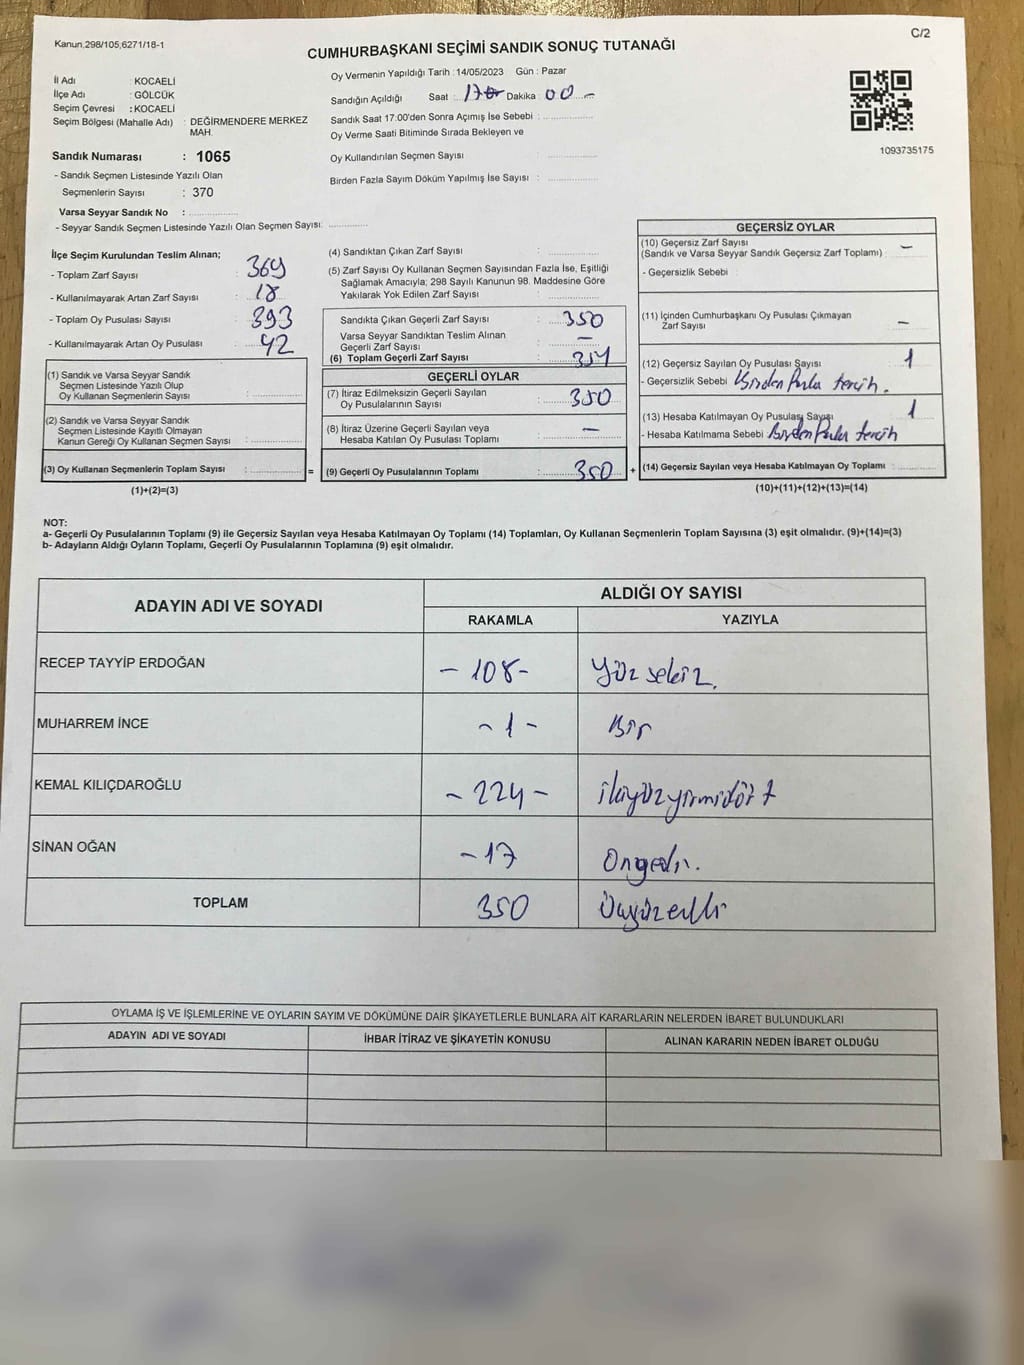 Kanun.298/105,6271/18-1
C/2
CUMHURBAŞKANI SEÇİMİ SANDIK SONUÇ TUTANAĞI
İl Adı : KOCAELİ
İlçe Adı : GÖLCÜK
Seçim Çevresi : KOCAELİ
Seçim Bölgesi (Mahalle Adı) : DEĞİRMENDERE MERKEZ
MAH.
Sandık Numarası : 1065
- Sandık Seçmen Listesinde Yazılı Olan
Seçmenlerin Sayısı : 370
Varsa Seyyar Sandık No :
- Seyyar Sandık Seçmen Listesinde Yazılı Olan Seçmen Sayısı:
Oy Vermenin Yapıldığı Tarih :14/05/2023 Gün : Pazar
Sandığın Açıldığı Saat : Dakika : 00 -
Sandık Saat 17:00'den Sonra Açımış İse Sebebi :
Oy Verme Saati Bitiminde Sırada Bekleyen ve
Oy Kullandırılan Seçmen Sayısı :
Birden Fazla Sayım Döküm Yapılmış İse Sayısı :
1093735175
İlçe Seçim Kurulundan Teslim Alınan;
- Toplam Zarf Sayısı : 369
- Kullanılmayarak Artan Zarf Sayısı : 18
- Toplam Oy Pusulası Sayısı : 393
- Kullanılmayarak Artan Oy Pusulası : 42
(1) Sandık ve Varsa Seyyar Sandık
Seçmen Listesinde Yazılı Olup
Oy Kullanan Seçmenlerin Sayısı :
(2) Sandık ve Varsa Seyyar Sandık
Seçmen Listesinde Kayıtlı Olmayan
Kanun Gereği Oy Kullanan Seçmen Sayısı :
(3) Oy Kullanan Seçmenlerin Toplam Sayısı : =
(1)+(2)=(3)
(4) Sandıktan Çıkan Zarf Sayısı :
(5) Zarf Sayısı Oy Kullanan Seçmen Sayısından Fazla İse, Eşitliği
Sağlamak Amacıyla; 298 Sayılı Kanunun 98. Maddesine Göre
Yakılarak Yok Edilen Zarf Sayısı :
Sandıkta Çıkan Geçerli Zarf Sayısı : 350
Varsa Seyyar Sandıktan Teslim Alınan
Geçerli Zarf Sayısı : -
(6) Toplam Geçerli Zarf Sayısı : 351
GEÇERLİ OYLAR
(7) İtiraz Edilmeksizin Geçerli Sayılan
Oy Pusulalarının Sayısı : 350
(8) İtiraz Üzerine Geçerli Sayılan veya
Hesaba Katılan Oy Pusulası Toplamı : -
(9) Geçerli Oy Pusulalarının Toplamı : 350 +
GEÇERSİZ OYLAR
(10) Geçersiz Zarf Sayısı
(Sandık ve Varsa Seyyar Sandık Geçersiz Zarf Toplamı) : -
- Geçersizlik Sebebi :
(11) İçinden Cumhurbaşkanı Oy Pusulası Çıkmayan
Zarf Sayısı : -
(12) Geçersiz Sayılan Oy Pusulası Sayısı : 1
- Geçersizlik Sebebi : Birden Fazla tercih.
(13) Hesaba Katılmayan Oy Pusulası Sayısı : 1
- Hesaba Katılmama Sebebi : Birden Fazla tercih
(14) Geçersiz Sayılan veya Hesaba Katılmayan Oy Toplamı :
(10)+(11)+(12)+(13)=(14)
NOT:
a- Geçerli Oy Pusulalarının Toplamı (9) ile Geçersiz Sayılan veya Hesaba Katılmayan Oy Toplamı (14) Toplamları, Oy Kullanan Seçmenlerin Toplam Sayısına (3) eşit olmalıdır. (9)+(14)=(3)
b- Adayların Aldığı Oyların Toplamı, Geçerli Oy Pusulalarının Toplamına (9) eşit olmalıdır.
ADAYIN ADI VE SOYADI
ALDIĞI OY SAYISI
RAKAMLA YAZIYLA
RECEP TAYYİP ERDOĞAN - 108 - Yüz sekiz.
MUHARREM İNCE - 1 - Bir
KEMAL KILIÇDAROĞLU - 224 - ikiyüzyirmidört
SİNAN OĞAN - 17 Onyedi.
TOPLAM 350 Üçyüzelli
OYLAMA İŞ VE İŞLEMLERİNE VE OYLARIN SAYIM VE DÖKÜMÜNE DAİR ŞİKAYETLERLE BUNLARA AİT KARARLARIN NELERDEN İBARET BULUNDUKLARI
ADAYIN ADI VE SOYADI İHBAR İTİRAZ VE ŞİKAYETİN KONUSU ALINAN KARARIN NEDEN İBARET OLDUĞU